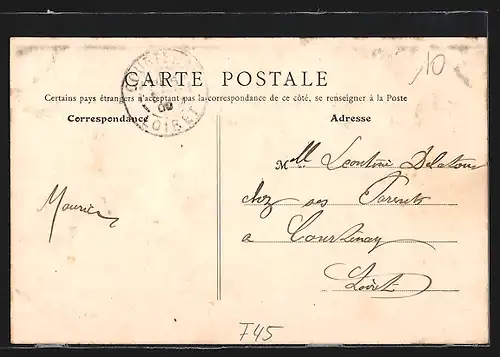 10
CARTE POSTALE
Certains pays étrangers n'acceptant pas la correspondance de ce côté, se renseigner à la Poste
Correspondance
Adresse
LOIRET
09
Mlle Léontine Delatour
chez ses Parents
a Courtenay
Loiret
Maurice
F45